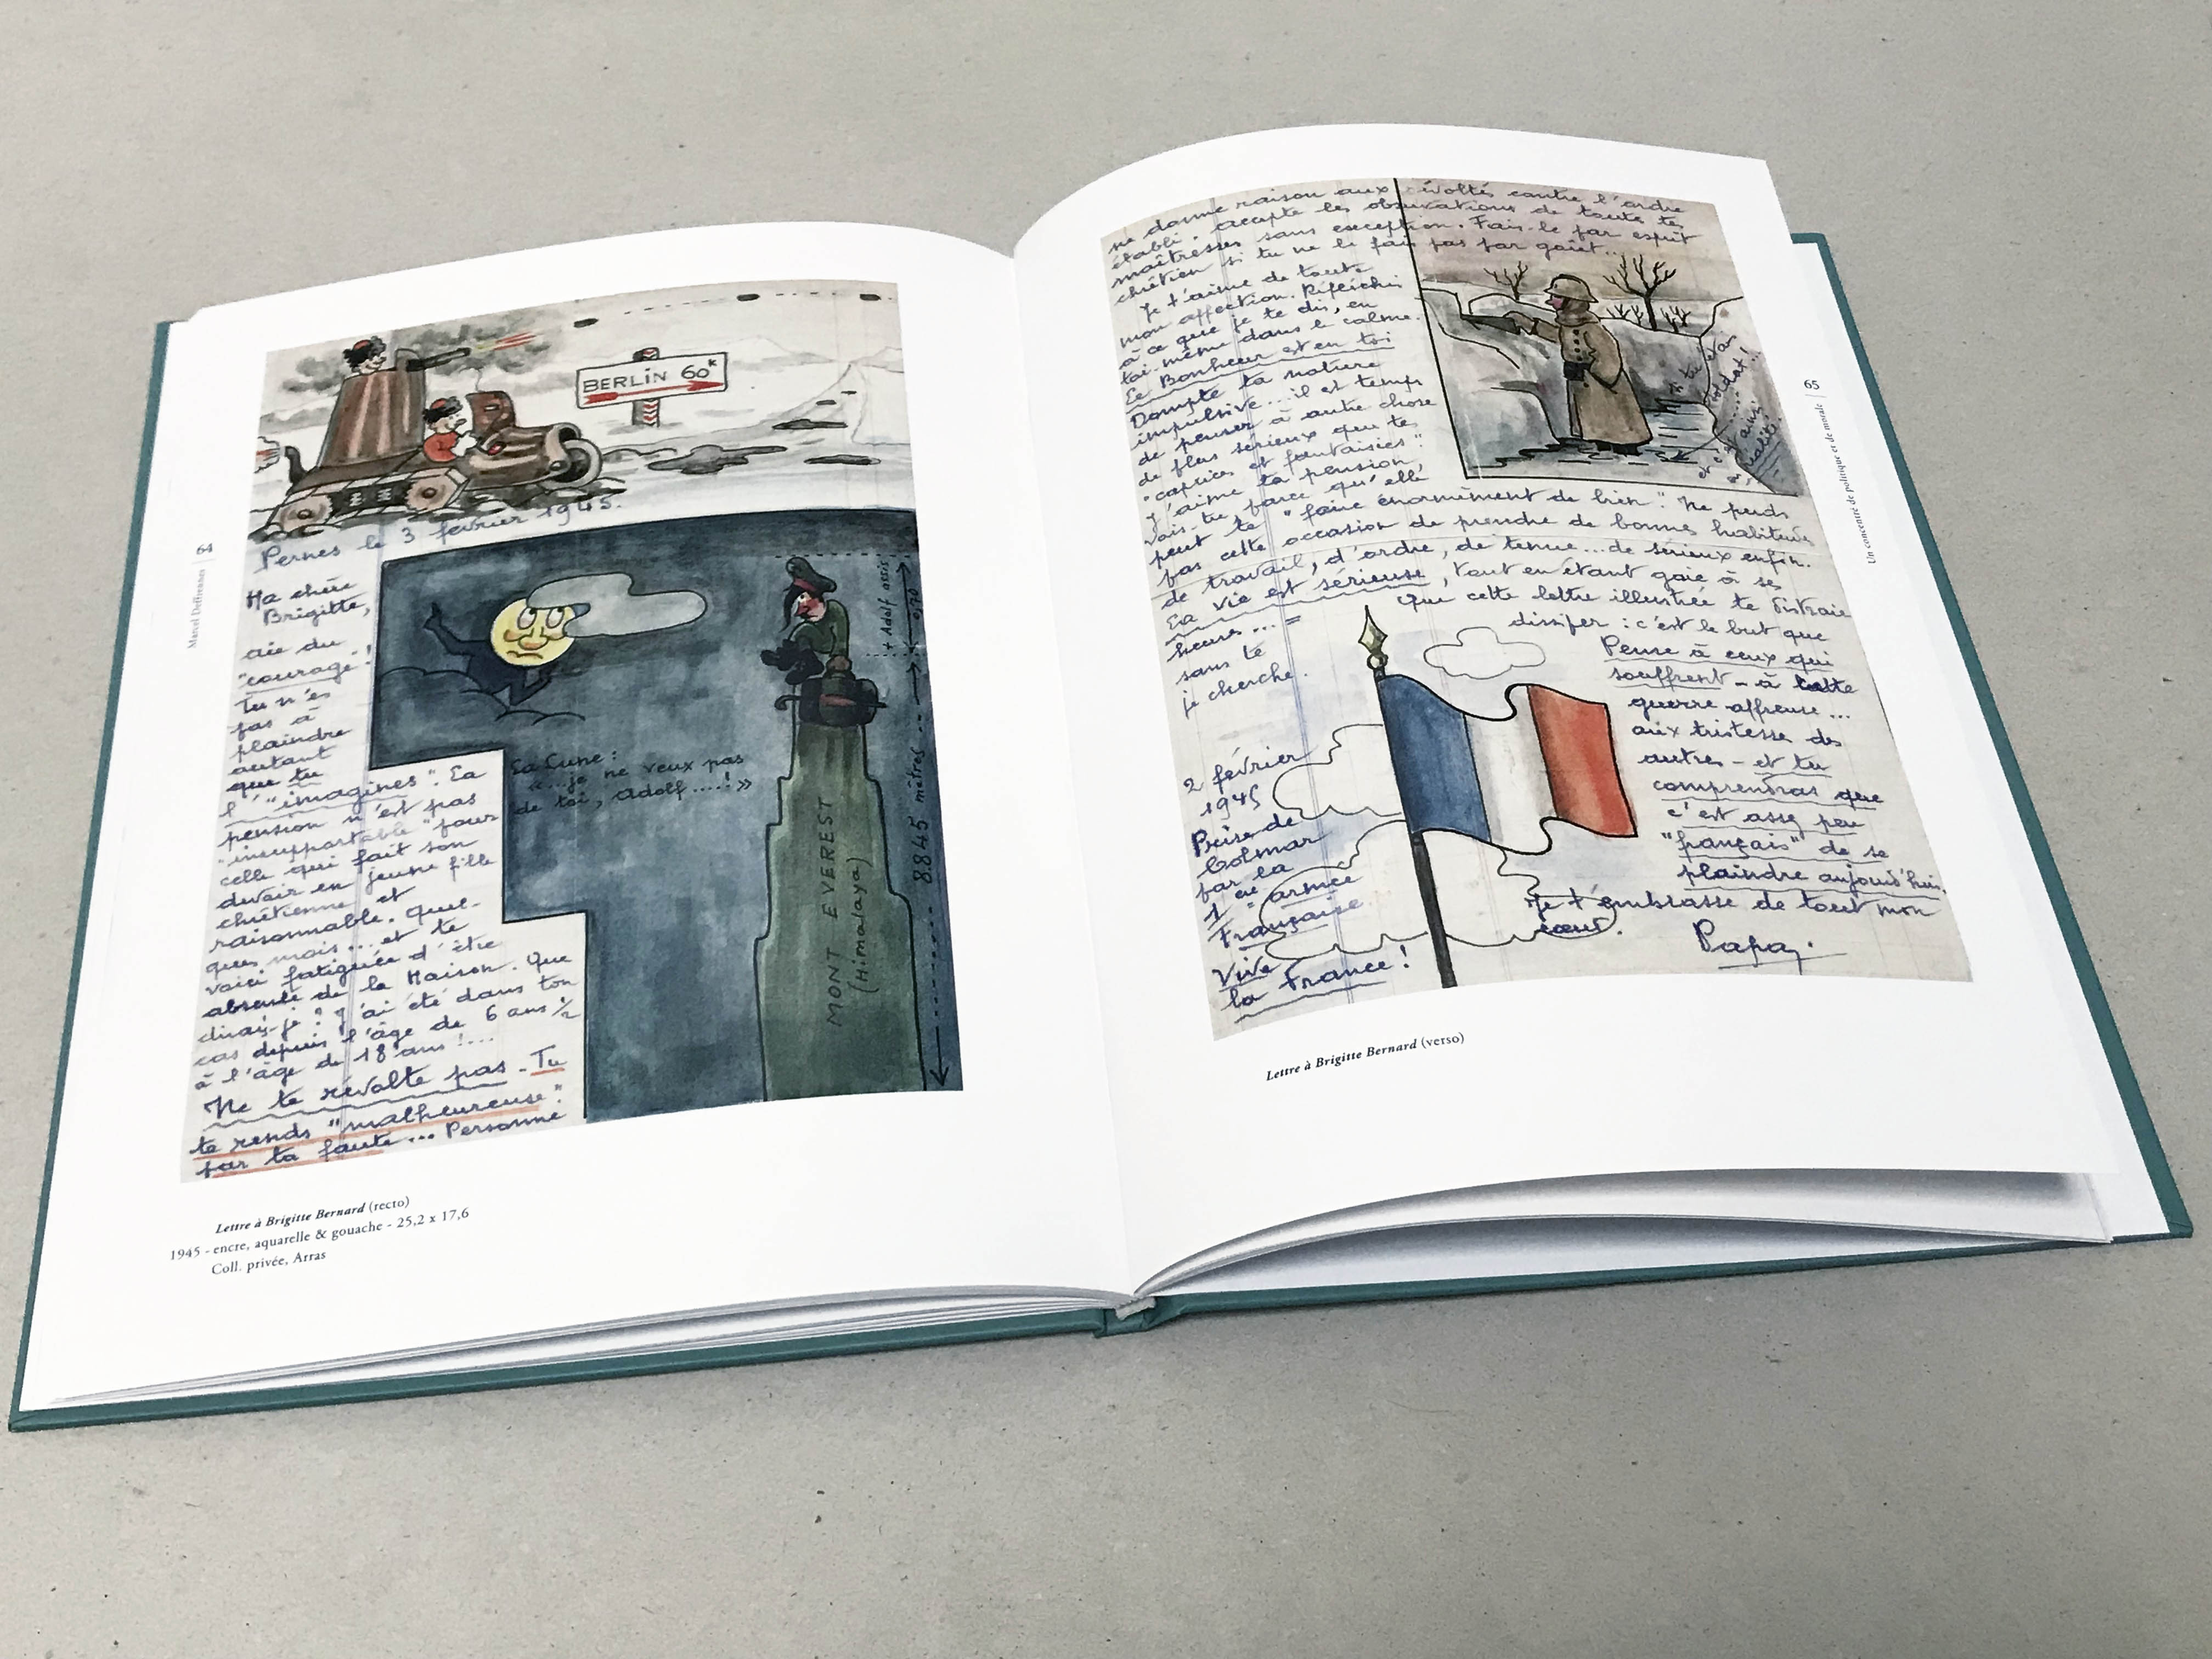 BERLIN 60ᵏ
Pernes le 3 février 1945.
Ma chère
Brigitte,
aie du
"courage"!
Tu n'es
pas à
plaindre
autant
que tu
l'"imagines". La
pension n'est pas
"insupportable" pour
celle qui fait son
devoir en jeune fille
chrétienne et
raisonnable. Quel-
ques mois... et te
voici fatiguée d'être
absente de la Maison. Que
dirais-je? J'ai été dans ton
cas depuis l'âge de 6 ans 1/2
à l'âge de 18 ans!...
Ne te révolte pas - Tu
te rends "malheureuse"
par ta faute... Personne
La Lune:
«...je ne veux pas
de toi, Adolf....!»
MONT EVEREST
(Himalaya)
8.845 mètres
+ Adolf assis
0,70
Lettre à Brigitte Bernard (recto)
1945 - encre, aquarelle & gouache - 25,2 x 17,6
Coll. privée, Arras
64
Marcel
ne donne raison aux révoltés contre l'ordre
établi. accepte les observations de toute tes
maîtresses sans exception. Fais-le par esprit
chrétien si tu ne le fais pas par goût...
Je t'aime de toute
mon affection. Réfléchis
à ce que je te dis, en
toi-même dans le calme.
Le Bonheur est en toi
Dompte ta nature
impulsive...il est temps
de penser à autre chose
de plus sérieux que tes
"caprices et fantaisies".
J'aime ta pension
vois-tu parce qu'elle
peut te "faire énormément de bien". Ne perds
pas cette occasion de prendre de bonnes habitudes
de travail, d'ordre, de tenue...de sérieux enfin.
La vie est sérieuse, tout en étant gaie à ses
heures...= Que cette lettre illustrée te distraie
sans te dissiper: c'est le but que
je cherche.
si tu étais
soldat!
.....
et c'est ainsi
réalité.
Pense à ceux qui
souffrent - à cette
guerre affreuse...
aux tristesse des
autres - et tu
comprendras que
c'est assez peu
"français" de se
plaindre aujourd'hui.
Je t'embrasse de tout mon
cœur.
Papa.
2 février
1945
Prise de
Colmar
par la
1ère armée
Française.
Vive
la France!
Lettre à Brigitte Bernard (verso)
65
Un concentré de politique et de morale